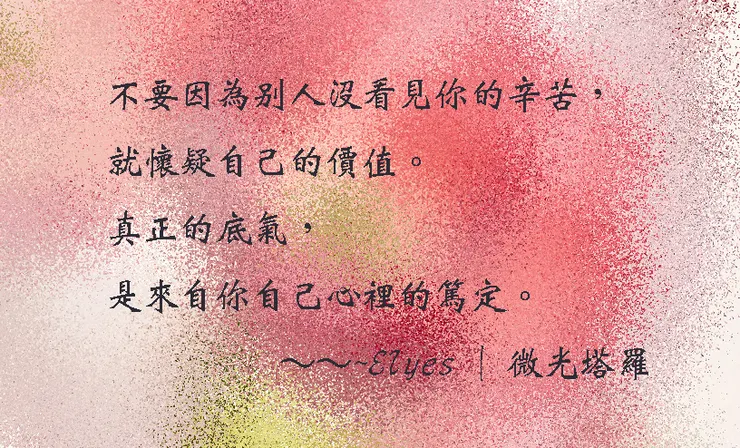 不要因為別人沒看見你的辛苦，
就懷疑自己的價值。
真正的底氣，
是來自你自己心裡的篤定。
～～~Elyes｜微光塔羅